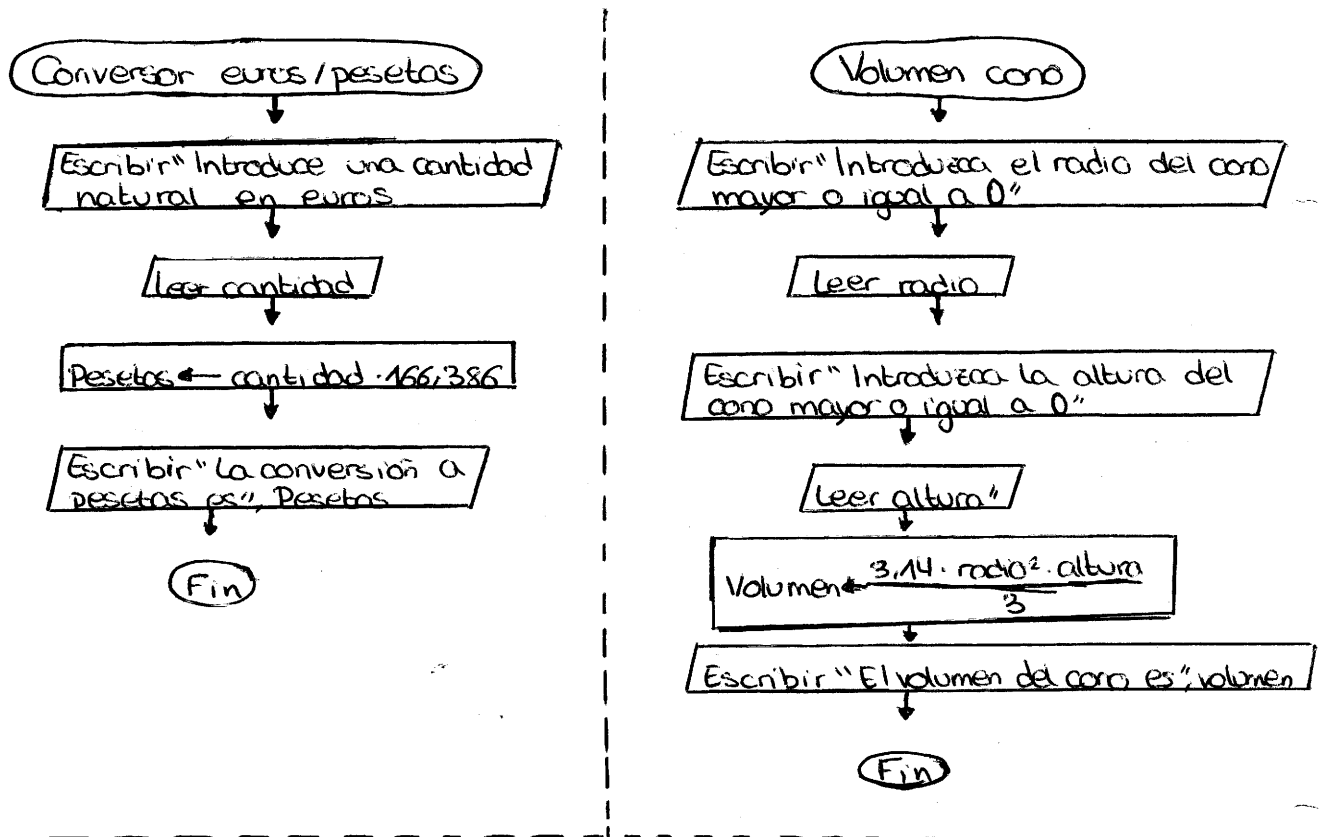 Conversor euros/pesetas
Escribir "Introduce una cantidad
natural en euros
Leer cantidad
Pesetas ← cantidad · 166,386
Escribir "La conversión a
pesetas es", Pesetas
Fin
Volumen cono
Escribir "Introduzca el radio del cono
mayor o igual a 0"
Leer radio
Escribir "Introduzca la altura del
cono mayor o igual a 0"
Leer altura"
Volumen ← 3,14 · radio² · altura
3
Escribir "El volumen del cono es", volumen
Fin